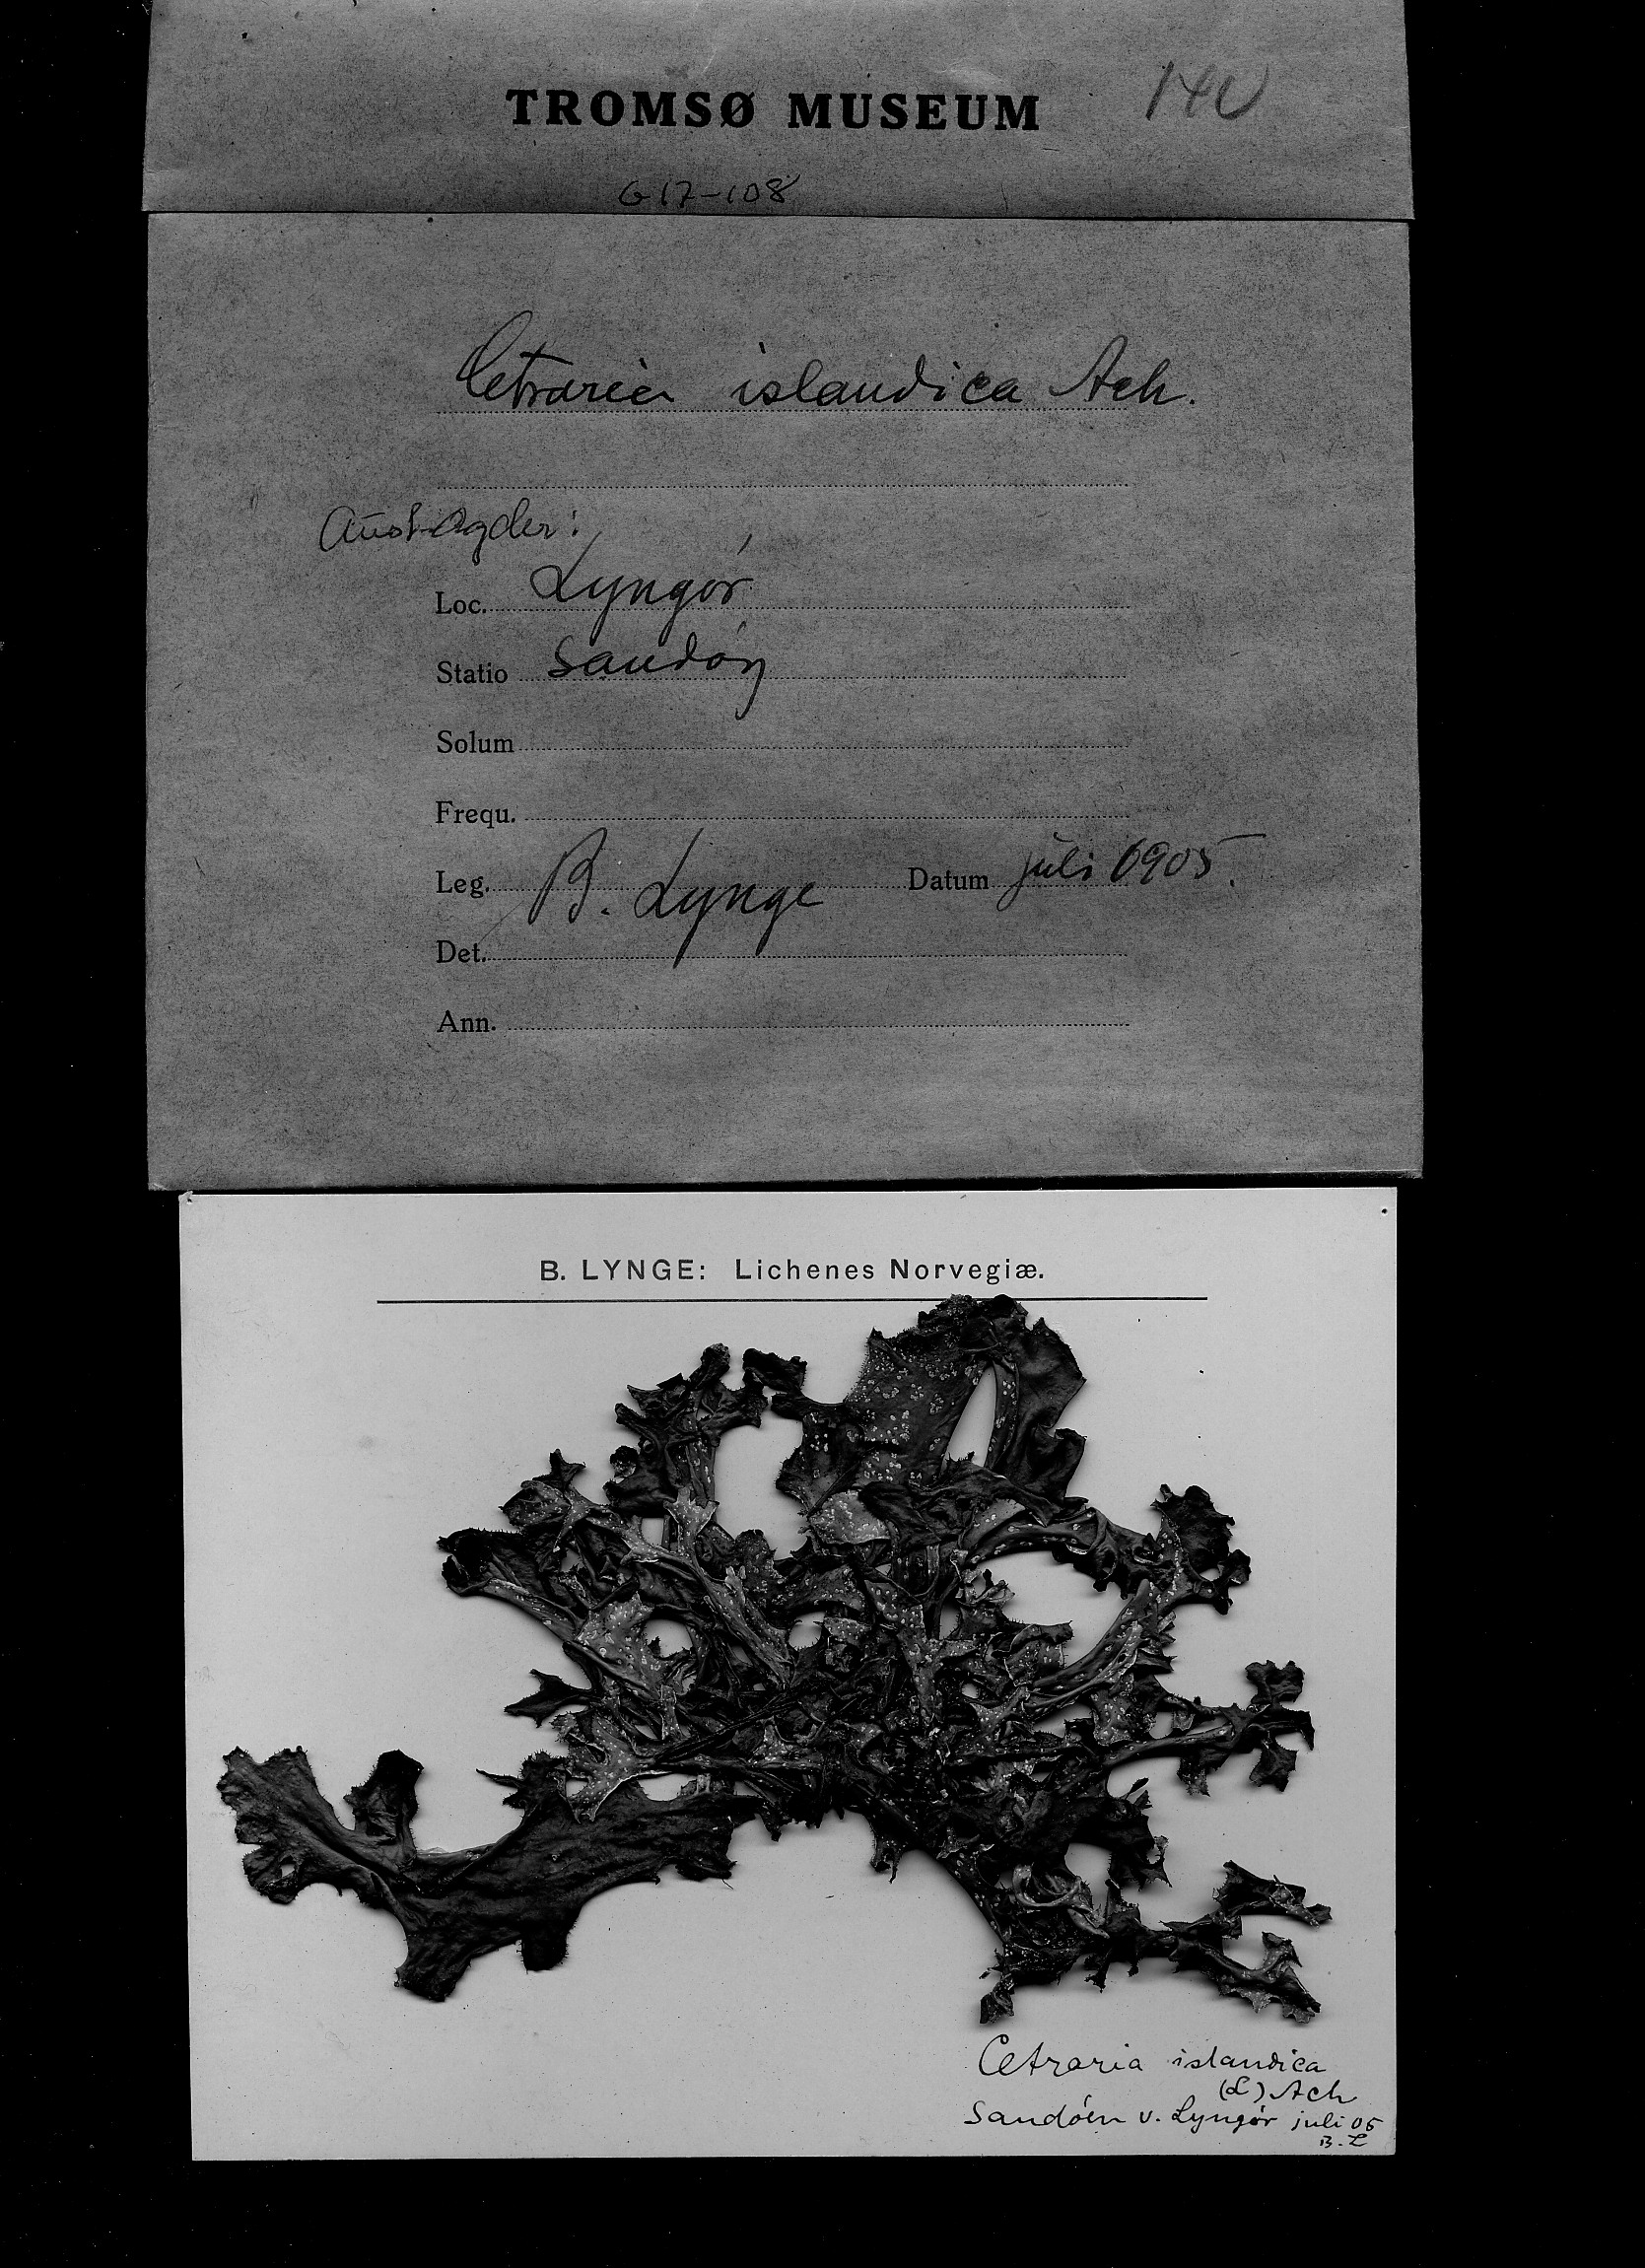 TROMSØ MUSEUM
G17-108
Cetraria islandica Ach.
Aust-Agder:
Loc. Lyngör
Statio Sandöy
Solum
Frequ.
Leg. B. Lynge Datum juli 1905.
Det.
Ann.
B. LYNGE: Lichenes Norvegiæ.
Cetraria islandica
(L) Ach
Sandöen v. Lyngör juli 05
B. L